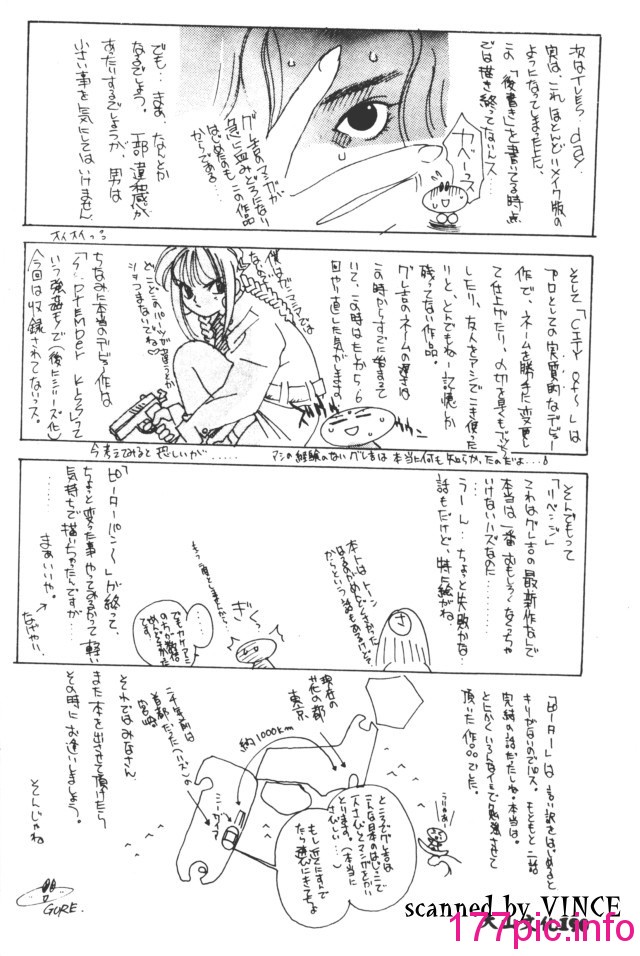 次はTLES dayz
実は、これほとんどリメイク版の
ようになってしまった上に、
この「後書き」を書いてる時点
では描き終ってないんス…
ガベーッス
グレ吉のマンガが
急に血みどろになり
はじめたのも、この作品
からである…
でも…まあ、なんとか
なるでしょう。
一部違和感が
あたりするでしょうが、男は
小さい事を気にしてはいけません
そして「CITY OF〜」は
プロとしての実質的なデビュー
作で、ネームを勝手に変更し
て仕上げたり、〆切を見てもアップ
したり、友人をアシでこき使った
りと、とんでもねー記憶が
残ってない作品。
グレ吉のネームの遅さは
この時からすでに始まって
この時はたしか5、6
回やり直した気がします。
ちなみに本当のデビュー作は
いう強姦モノで(後にシリーズ化)
今回は収録されてないっス。
今考えてみると恐しいが……
アシの経験のないグレ吉は本当に何も知らなかったのだよ…
そんでもって
「リベンジ」
これはグレ吉の最新作なんで
本当は一番おもしろくなくっちゃ
いけないハズなのに……
うーん…ちょっと失敗かな…
話もだけど、特に絵がね
さ
本トはトーン
はるのがめんどくさかった
からという話もあるけど…
ぎくっ
もう二度としませんから。
でもカケアミ
「ピーターパン〜」が終って、
ちょっと変った事やってみるかって軽い
気持ちで描いちゃたんですが…
まぁいいや。
「ピーター」は言い訳をはじめると
キリがないのでパス。もともと二話
完結の話だたしね。本当は。
とにかくいろんなイミで勉強させて
頂いた作品でした。
現在の
花の都
東京
約1000km
二千年前は
首都だった(ハズの)
宮崎
ニーターズ
ところでグレ吉は
こんな日本のはじっこで
一人さびしくマンガをかい
とります。(本当に
さびしい…)
もし近くにすんで
たら遊びにきてちょ
それではみなさん
また本を出させて頂けたら
その時にお逢いしましょう。
そんじゃね
GURE.
scanned by VINCE
177pic.info